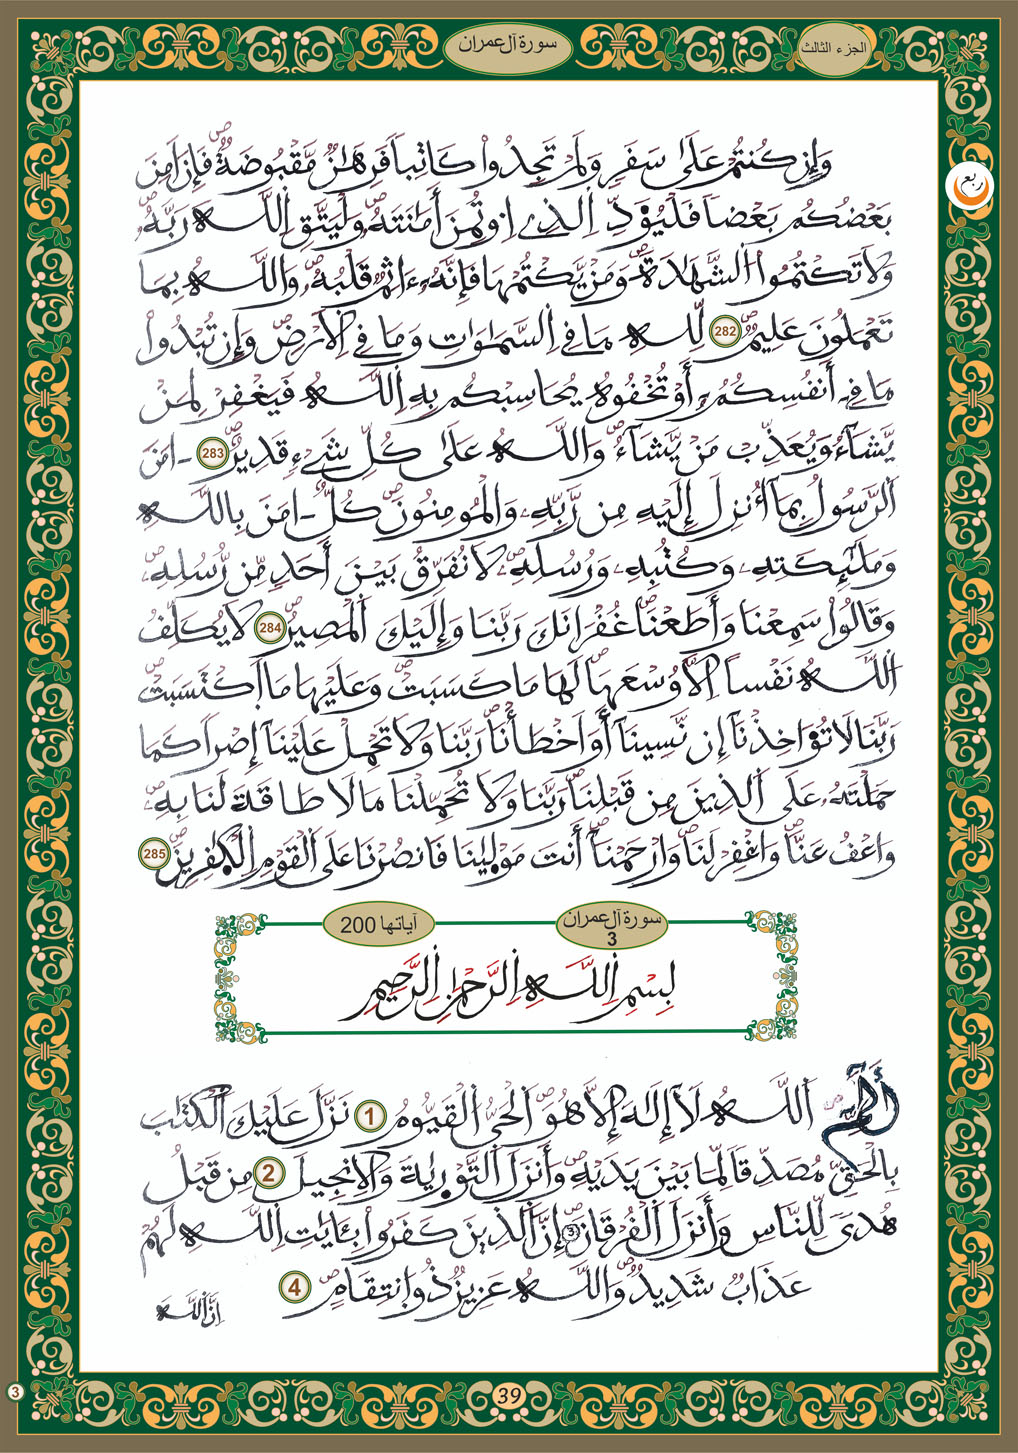 سورة آل عمران
الجزء الثالث
وَإِن كُنتُمْ عَلَىٰ سَفَرٍ وَلَمْ تَجِدُوا۟ كَاتِباً فَرِهَٰنٌ مَّقْبُوضَةٌ ص فَإِنْ أَمِنَ
ربع
بَعْضُكُم بَعْضاً فَلْيُؤَدِّ اِ۬لذِے اِ۟وتُمِنَ أَمَٰنَتَهُۥ وَلْيَتَّقِ اِ۬للَّهَ رَبَّهُۥ ص
وَلَا تَكْتُمُوا۟ اُ۬لشَّهَٰدَةَ ص وَمَنْ يَّكْتُمْهَا فَإِنَّهُۥٓ ءَاثِمٌ قَلْبُهُۥ ص وَاللَّهُ بِمَا
تَعْمَلُونَ عَلِيمٌ ص 282 لِّلهِ مَا فِے اِ۬لسَّمَٰوَٰتِ وَمَا فِے اِ۬لَارْضِ ص وَإِن تُبْدُوا۟
مَا فِےٓ أَنفُسِكُمُۥٓ أَوْ تُخْفُوهُ يُحَاسِبْكُم بِهِ اِ۬للَّهُ فَيَغْفِرْ لِمَنْ
يَّشَآءُ وَيُعَذِّب مَّنْ يَّشَآءُ ص وَاللَّهُ عَلَىٰ كُلِّ شَےْءٍ قَدِيرٌ ص 283 ـ امَنَ
اَ۬لرَّسُولُ بِمَآ أُنزِلَ إِلَيْهِ مِن رَّبِّهِۦ وَالْمُومِنُونَ ص كُلٌّ ـ امَنَ بِاللَّهِ
وَمَلَٰٓئِكَتِهِۦ وَكُتُبِهِۦ وَرُسُلِهِۦ ص لَا نُفَرِّقُ بَيْنَ أَحَدٍ مِّن رُّسُلِهِۦ ص
وَقَالُوا۟ سَمِعْنَا وَأَطَعْنَا ص غُفْرَانَكَ رَبَّنَا وَإِلَيْكَ اَ۬لْمَصِيرُ ص 284 لَا يُكَلِّفُ
اُ۬للَّهُ نَفْساً اِلَّا وُسْعَهَا ص لَهَا مَا كَسَبَتْ ص وَعَلَيْهَا مَا اَ۪كْتَسَبَتْ ص
رَبَّنَا لَا تُؤَاخِذْنَآ إِن نَّسِينَآ أَوَ اَخْطَأْنَا ص رَبَّنَا وَلَا تَحْمِلْ عَلَيْنَآ إِصْراً كَمَا
حَمَلْتَهُۥ عَلَى اَ۬لذِينَ مِن قَبْلِنَا ص رَبَّنَا وَلَا تُحَمِّلْنَا مَا لَا طَاقَةَ لَنَا بِهِۦ ص
وَاعْفُ عَنَّا ص وَاغْفِرْ لَنَا ص وَارْحَمْنَا ص أَنتَ مَوْلَىٰنَا فَانصُرْنَا عَلَى اَ۬لْقَوْمِ اِ۬لْكٰ۪فِرِينَ ص 285
سورة آل عمران 3
آياتها 200
بِسْمِ اِ۬للَّهِ اِ۬لرَّحْمَٰنِ اِ۬لرَّحِيمِ
أَلَٓمِّٓ ص اَ۬للَّهُ لَآ إِلَٰهَ إِلَّا هُوَ ص اَ۬لْحَىُّ اُ۬لْقَيُّومُ 1 نَزَّلَ عَلَيْكَ اَ۬لْكِتَٰبَ
بِالْحَقِّ مُصَدِّقاً لِّمَا بَيْنَ يَدَيْهِ ص وَأَنزَلَ اَ۬لتَّوْرَىٰةَ وَالِانجِيلَ 2 مِن قَبْلُ
هُدىً لِّلنَّاسِ وَأَنزَلَ اَ۬لْفُرْقَانَ ص 3 إِنَّ اَ۬لذِينَ كَفَرُوا۟ بِـَٔايَٰتِ اِ۬للَّهِ لَهُمْ
عَذَابٌ شَدِيدٌ ص وَاللَّهُ عَزِيزٌ ذُو اُ۪نتِقَامٍ ص 4
إِنَّ اَ۬للَّهَ
3
39